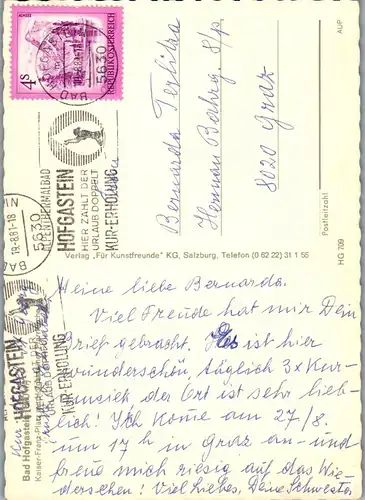 Meine liebe Bernarda.
Viel Freude hat mir Dein
Brief gebracht. Es ist hier
wunderschön, täglich 3x Kur-
musick der Ort ist sehr lieb-
lich! Ich Kome am 27/8.
um 17 h in Graz an - und
freue mich riesig auf das Wie-
dersehen! Viel Liebes, Deine Schwester
Bernarda Terlitza
Herman Bahrg. 8/p
8020 Graz
Postleitzahl
AUP
HG 709
Verlag „Für Kunstfreunde" KG, Salzburg, Telefon (0 62 22) 31 1 55
4S
REPUBLIK ÖSTERREICH
ALMSEE
5630
BAD HOFGASTEIN
19.-8.81-18
ALPENTHERMALBAD
HOFGASTEIN
HIER ZÄHLT DER
URLAUB DOPPELT
KUR-ERHOLUNG
5630
19.-8.81-18
HOFGASTEIN
KUR-ERHOLUNG
Bad Hofgastein
Kaiser-Franz-Platz